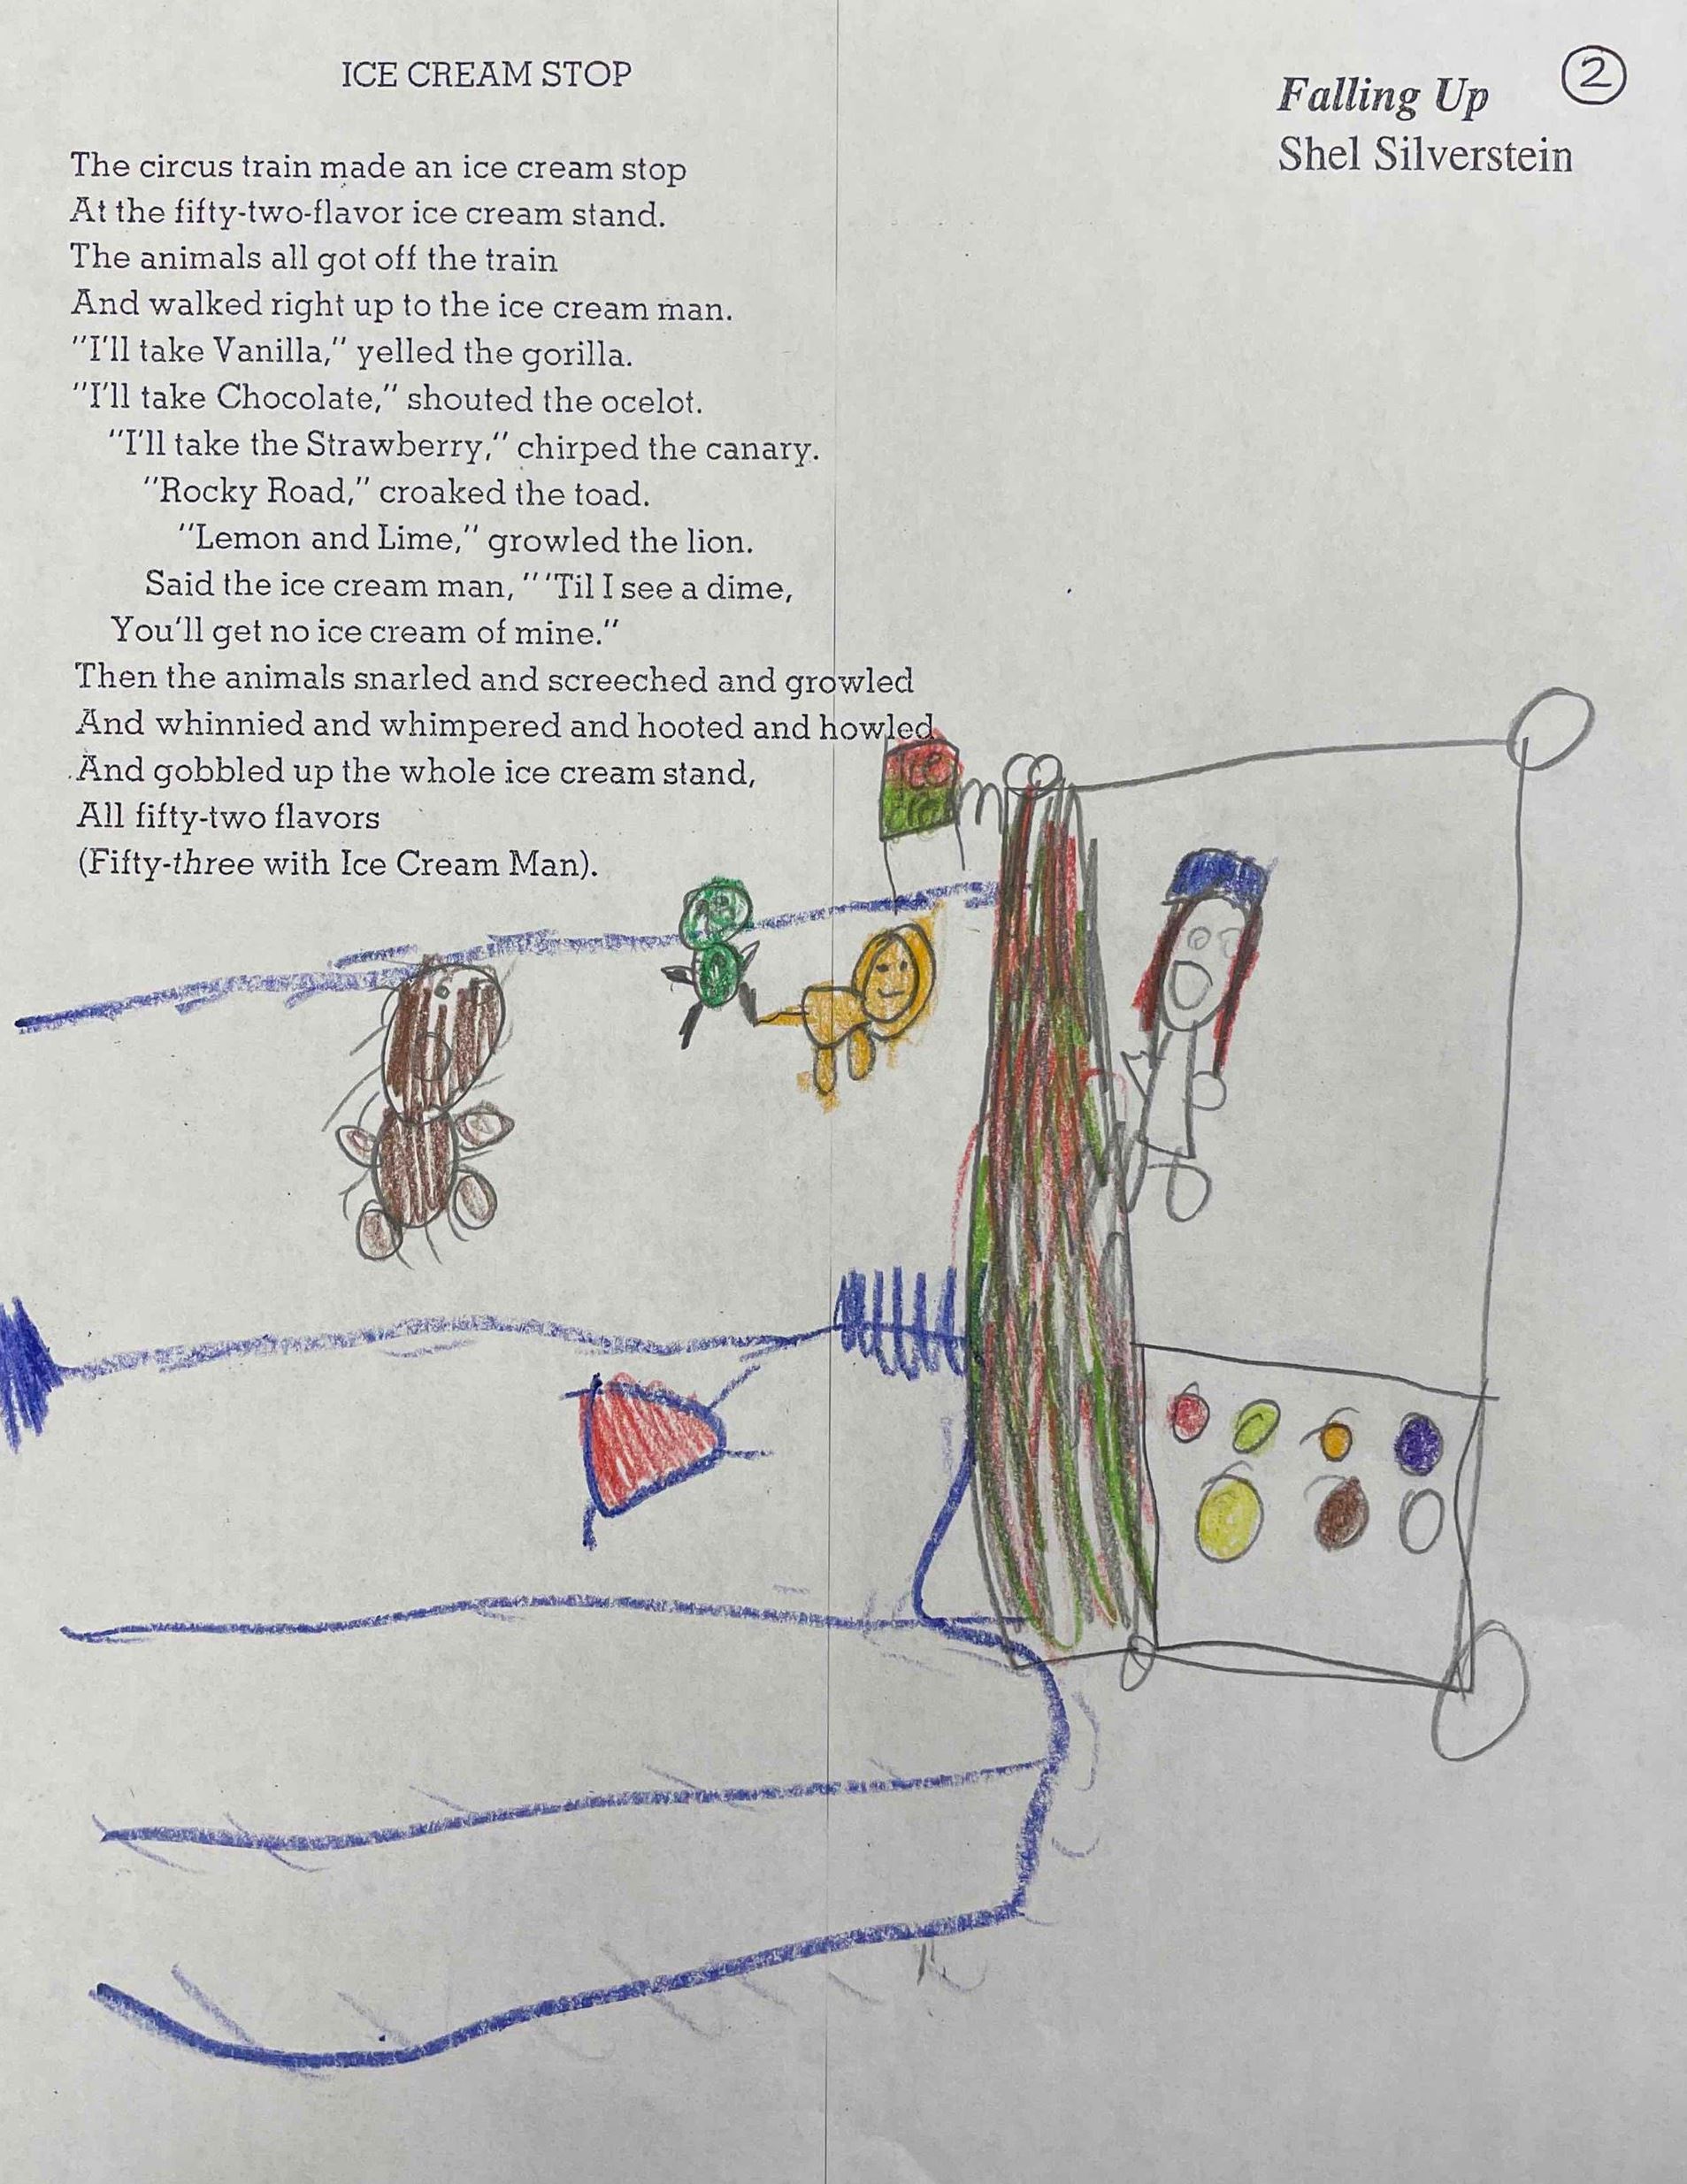 ICE CREAM STOP
Falling Up
②
Shel Silverstein
The circus train made an ice cream stop
At the fifty-two-flavor ice cream stand.
The animals all got off the train
And walked right up to the ice cream man.
"I'll take Vanilla," yelled the gorilla.
"I'll take Chocolate," shouted the ocelot.
"I'll take the Strawberry," chirped the canary.
"Rocky Road," croaked the toad.
"Lemon and Lime," growled the lion.
Said the ice cream man, "'Til I see a dime,
You'll get no ice cream of mine."
Then the animals snarled and screeched and growled
And whinnied and whimpered and hooted and howled
And gobbled up the whole ice cream stand,
All fifty-two flavors
(Fifty-three with Ice Cream Man).